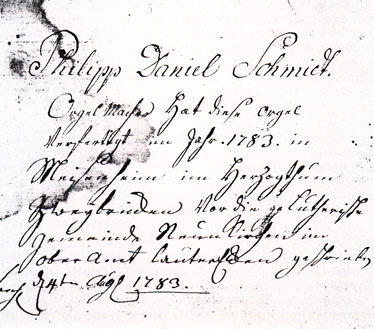 Philipp Daniel Schmidt.
Orgel Macher Hat diese orgel
Verfertigt im Jahr. 1783. in
Meisenheim im Herzogthum
Zweybrücken Vor die Lutherische
gemeinde Neun Kirchen im
ober Amt lautrecken geschrieben
d 4ten 1783.